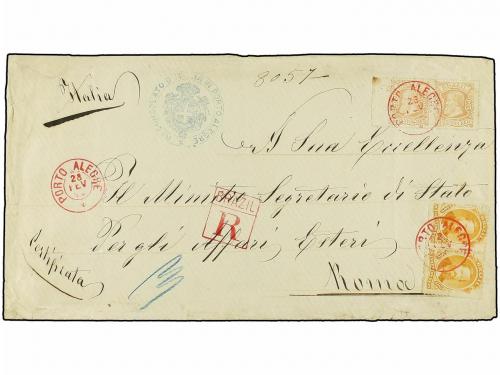 Italia
8057
PORTO ALEGRE
A Sua Eccellenza
PORTO ALEGRE
28
FEV
Il Ministro Segretario di Stato
BRAZIL
R
PORTO ALEGRE
Per gli Affari Esteri
Roma